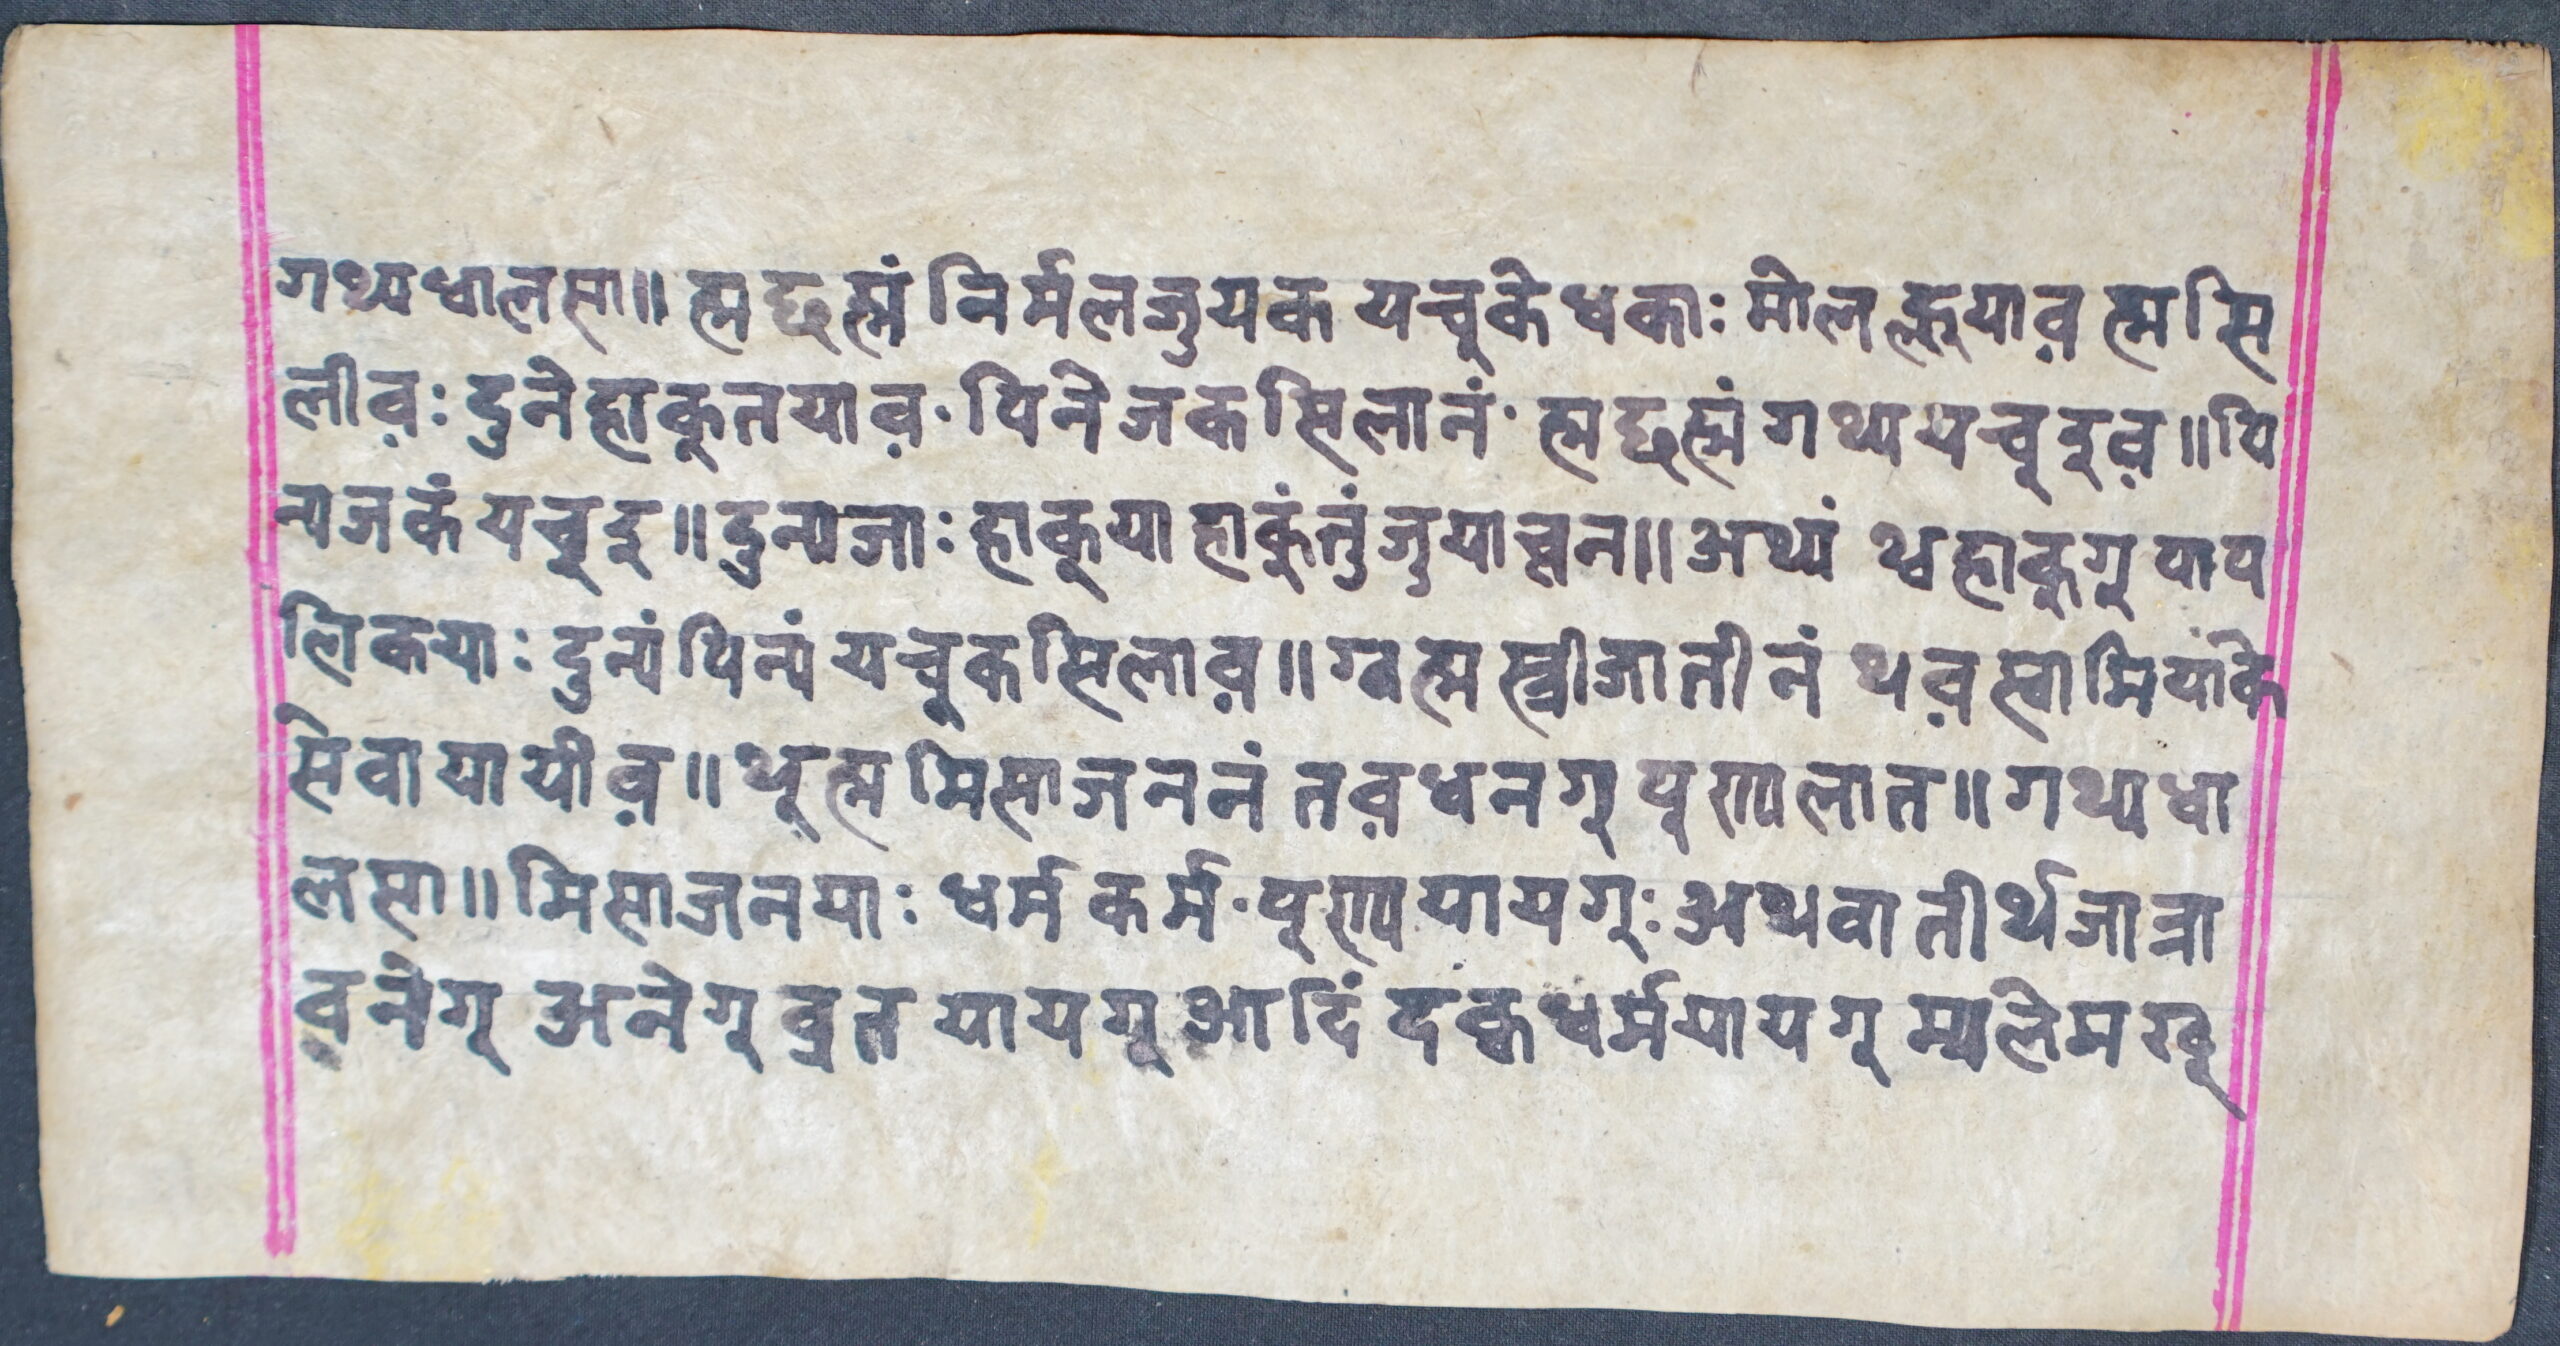 गथ्यधालसा॥ ह्म छह्मं निर्मलजुयक यचुके धकाः मोल ल्हुयाव़ ह्म सि
लीव़ः दुने हाकुतयाव़· पिने जक सिलानं· ह्म छह्मं गथ्य यचुइव़॥ पि
न्य जकं यचुइ॥ दुन्यजाः हाकुया हाकुंनुं जुयाच्वन॥ अथ्यं थ्व हाकुगु पाप
लिकयाः दुन्यं पिन्यं यचुक सिलाव़॥ ग्वह्म स्त्रीजातीनं थव़ स्वामियाके
सेवा यायीव़॥ थूह्म मिसाजननं तव़धनगू पूण्य लात॥ गथ्यधा
लसा॥ मिसाजनयाः धर्म कर्म· पूण्य यायगूः अथवा तीर्थ जात्रा
वनेगू अनेगू व्रत यायगू आदिं दक्व धर्म यायगू म्वालेमखू